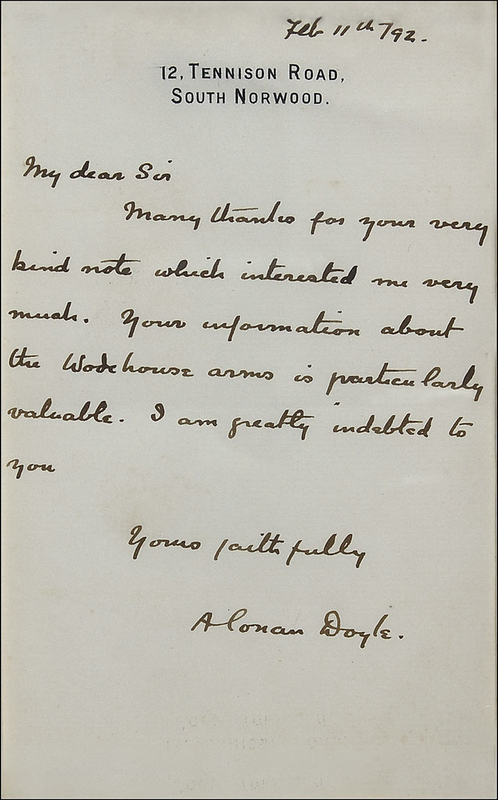 Feb 11th/92.
12, TENNISON ROAD,
SOUTH NORWOOD.
My dear Sir
Many thanks for your very
kind note which interested me very
much. Your information about
the Wodehouse arms is particularly
valuable. I am greatly indebted to
you
Yours faithfully
A Conan Doyle.